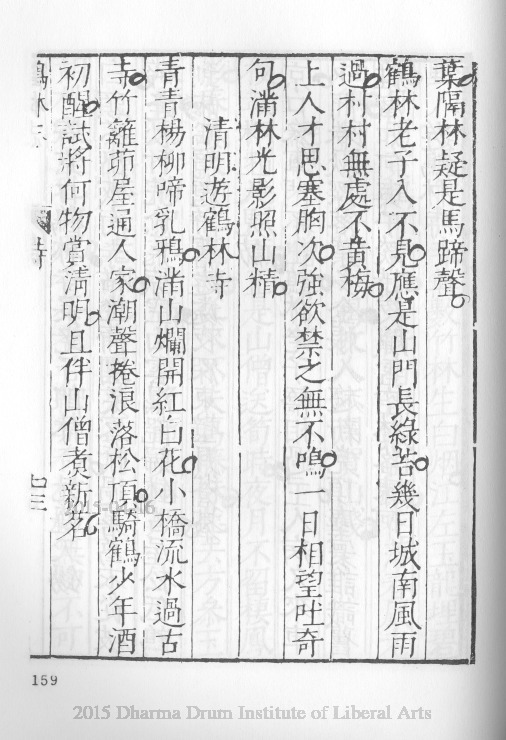 葉隔林疑是馬蹄聲
鶴林老子入不見應是山門長綠苔幾日城南風雨
過村村無處不黃梅
上人才思塞胸次強欲禁之無不鳴一日相望吐奇
句滿林光影照山精
清明遊鶴林寺
青青楊柳啼乳鴉滿山爛開紅白花小橋流水過古
寺竹籬茆屋通人家潮聲捲浪落松頂騎鶴少年酒
初醒試將何物賞清明且伴山僧煑新茗
鶴林寺
七三
159
2015 Dharma Drum Institute of Liberal Arts